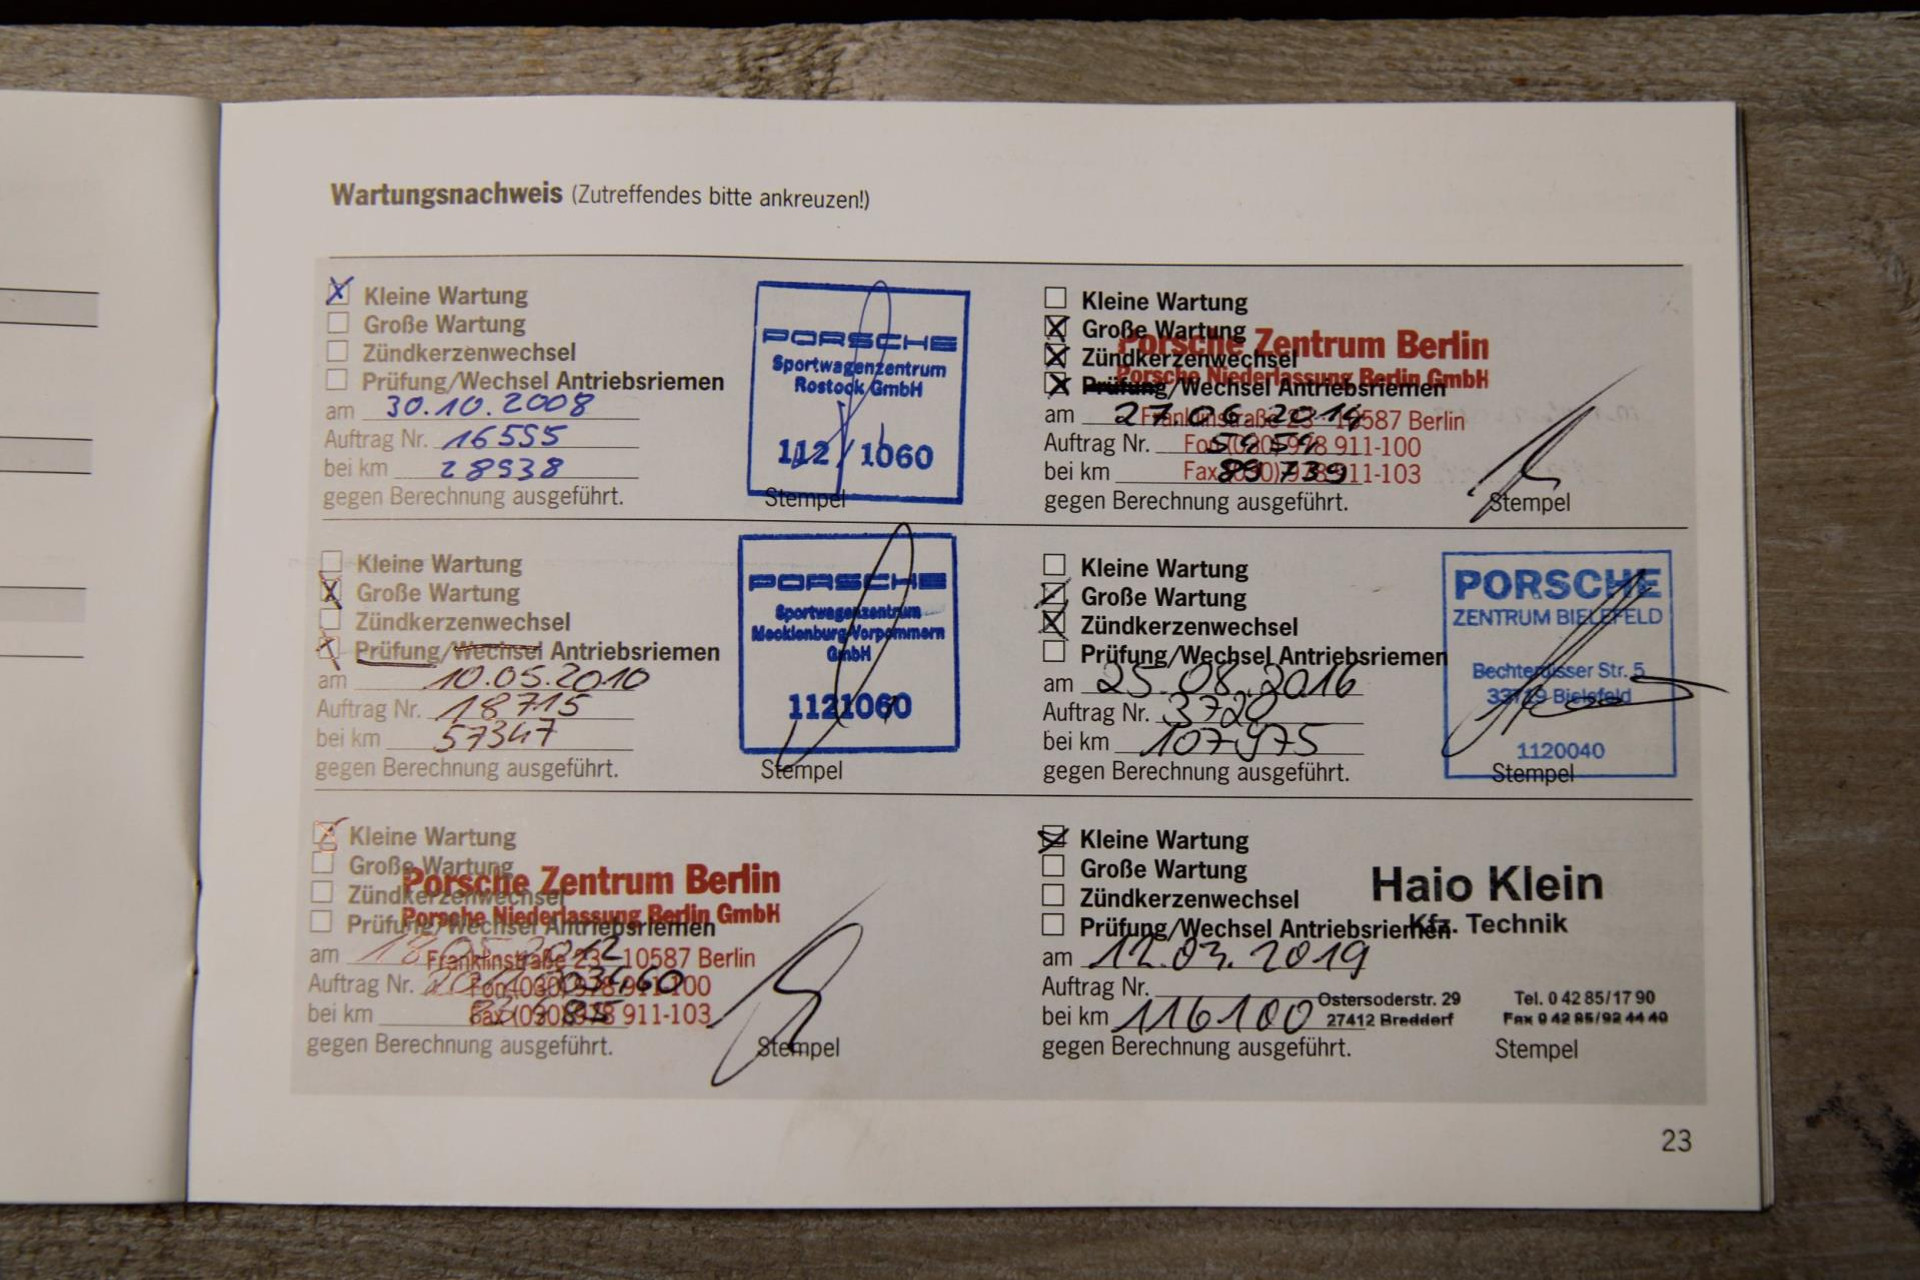 Wartungsnachweis (Zutreffendes bitte ankreuzen!)
Kleine Wartung
Große Wartung
Zündkerzenwechsel
Prüfung/Wechsel Antriebsriemen
am 30.10.2008
Auftrag Nr. 16555
bei km 28938
gegen Berechnung ausgeführt.
PORSCHE
Sportwagenzentrum
Rostock GmbH
112/1060
Stempel
Kleine Wartung
Große Wartung
Zündkerzenwechsel
Prüfung/Wechsel Antriebsriemen
am 10.05.2010
Auftrag Nr. 18715
bei km 57347
gegen Berechnung ausgeführt.
PORSCHE
Sportwagenzentrum
Mecklenburg-Vorpommern
GmbH
1121060
Stempel
Kleine Wartung
Große Wartung
Zündkerzenwechsel
Prüfung/Wechsel Antriebsriemen
am 18.05.2012
Auftrag Nr.
bei km
gegen Berechnung ausgeführt.
Porsche Zentrum Berlin
Porsche Niederlassung Berlin GmbH
Franklinstraße 23 10587 Berlin
Fon (030) 978 911-100
Fax (030) 978 911-103
Stempel
Kleine Wartung
Große Wartung
Zündkerzenwechsel
Prüfung/Wechsel Antriebsriemen
am 27.06.2014
Auftrag Nr.
bei km 89739
gegen Berechnung ausgeführt.
Porsche Zentrum Berlin
Porsche Niederlassung Berlin GmbH
Franklinstraße 23 10587 Berlin
Fon (030) 978 911-100
Fax (030) 978 911-103
Stempel
Kleine Wartung
Große Wartung
Zündkerzenwechsel
Prüfung/Wechsel Antriebsriemen
am 25.08.2016
Auftrag Nr. 3720
bei km 107975
gegen Berechnung ausgeführt.
PORSCHE
ZENTRUM BIELEFELD
Bechterdisser Str. 5
33719 Bielefeld
1120040
Stempel
Kleine Wartung
Große Wartung
Zündkerzenwechsel
Prüfung/Wechsel Antriebsriemen
am 12.03.2019
Auftrag Nr.
bei km 116100
gegen Berechnung ausgeführt.
Haio Klein
Kfz. Technik
Ostersoderstr. 29
27412 Breddorf
Tel. 0 42 85/17 90
Fax 0 42 85/92 44 40
Stempel
23